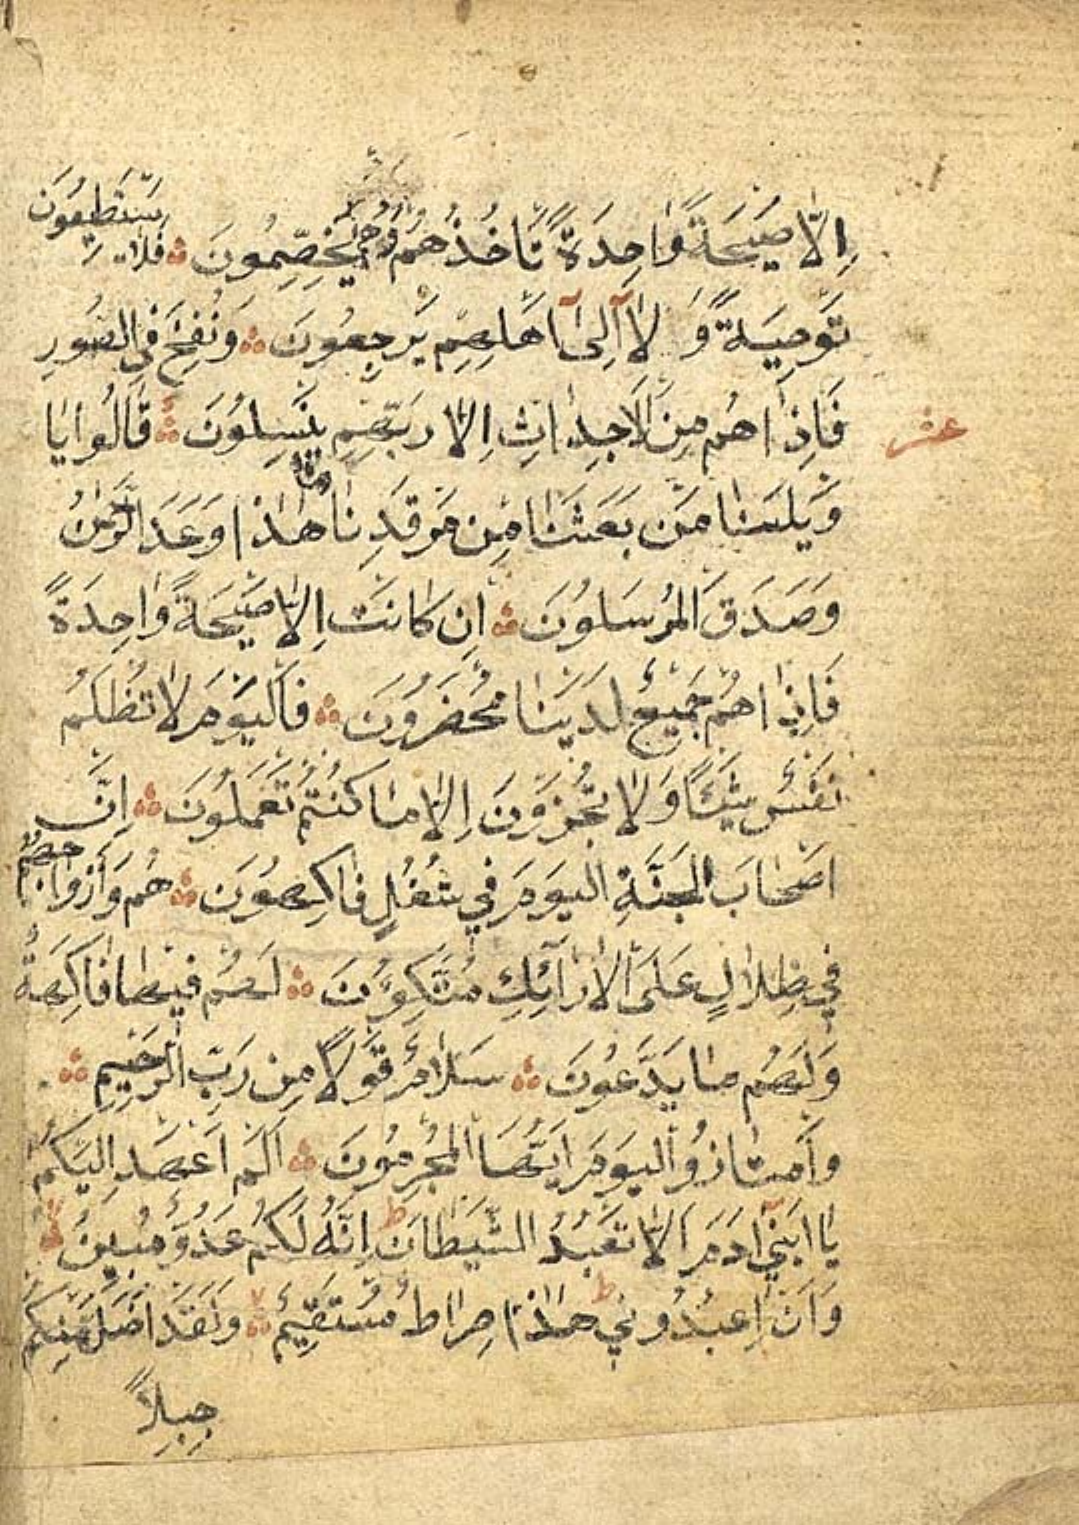 اِلَّا صَيْحَةً وَاحِدَةً تَاْخُذُهُمْ وَهُمْ يَخِصِّمُونَ فَلَا يَسْتَطِيعُونَ
تَوْصِيَةً وَ لَا اِلٰى اَهْلِهِمْ يَرْجِعُونَ وَنُفِخَ فِي الصُّورِ
فَاِذَا هُمْ مِنَ الْاَجْدَاثِ اِلَا رَبِّهِمْ يَنْسِلُونَ قَالُوا يَا
عشر
وَيْلَنَا مَنْ بَعَثَنَا مِنْ مَرْقَدِنَا هٰذَا مَا وَعَدَ الرَّحْمٰنُ
وَصَدَقَ الْمُرْسَلُونَ اِنْ كَانَتْ اِلَّا صَيْحَةً وَاحِدَةً
فَاِذَا هُمْ جَمِيعٌ لَدَيْنَا مُحْضَرُونَ فَالْيَوْمَ لَا تُظْلَمُ
نَفْسٌ شَيْئًا وَلَا تُجْزَوْنَ اِلَّا مَا كُنْتُمْ تَعْمَلُونَ اِنَّ
اَصْحَابَ الْجَنَّةِ الْيَوْمَ فِي شُغُلٍ فَاكِهُونَ هُمْ وَاَزْوَاجُهُمْ
فِي ظِلَالٍ عَلَى الْاَرَآئِكِ مُتَّكِؤُنَ لَهُمْ فِيهَا فَاكِهَةٌ
وَلَهُمْ مَا يَدَّعُونَ سَلَامٌ قَوْلًا مِنْ رَبِّ الرَّحِيمِ
وَامْتَازُوا الْيَوْمَ اَيُّهَا الْمُجْرِمُونَ اَلَمْ اَعْهَدْ اِلَيْكُمْ
يَا ابَنِيٓ اٰدَمَ اَلَّا تَعْبُدُ الشَّيْطَانَ ط اِنَّهُ لَكُمْ عَدُوٌّ مُبِينٌ لا
وَاَنِ اعْبُدُونِي ط هٰذَا صِرَاطٌ مُسْتَقِيمٌ وَلَقَدْ اَضَلَّ مِنْكُمْ
جِبِلًّا